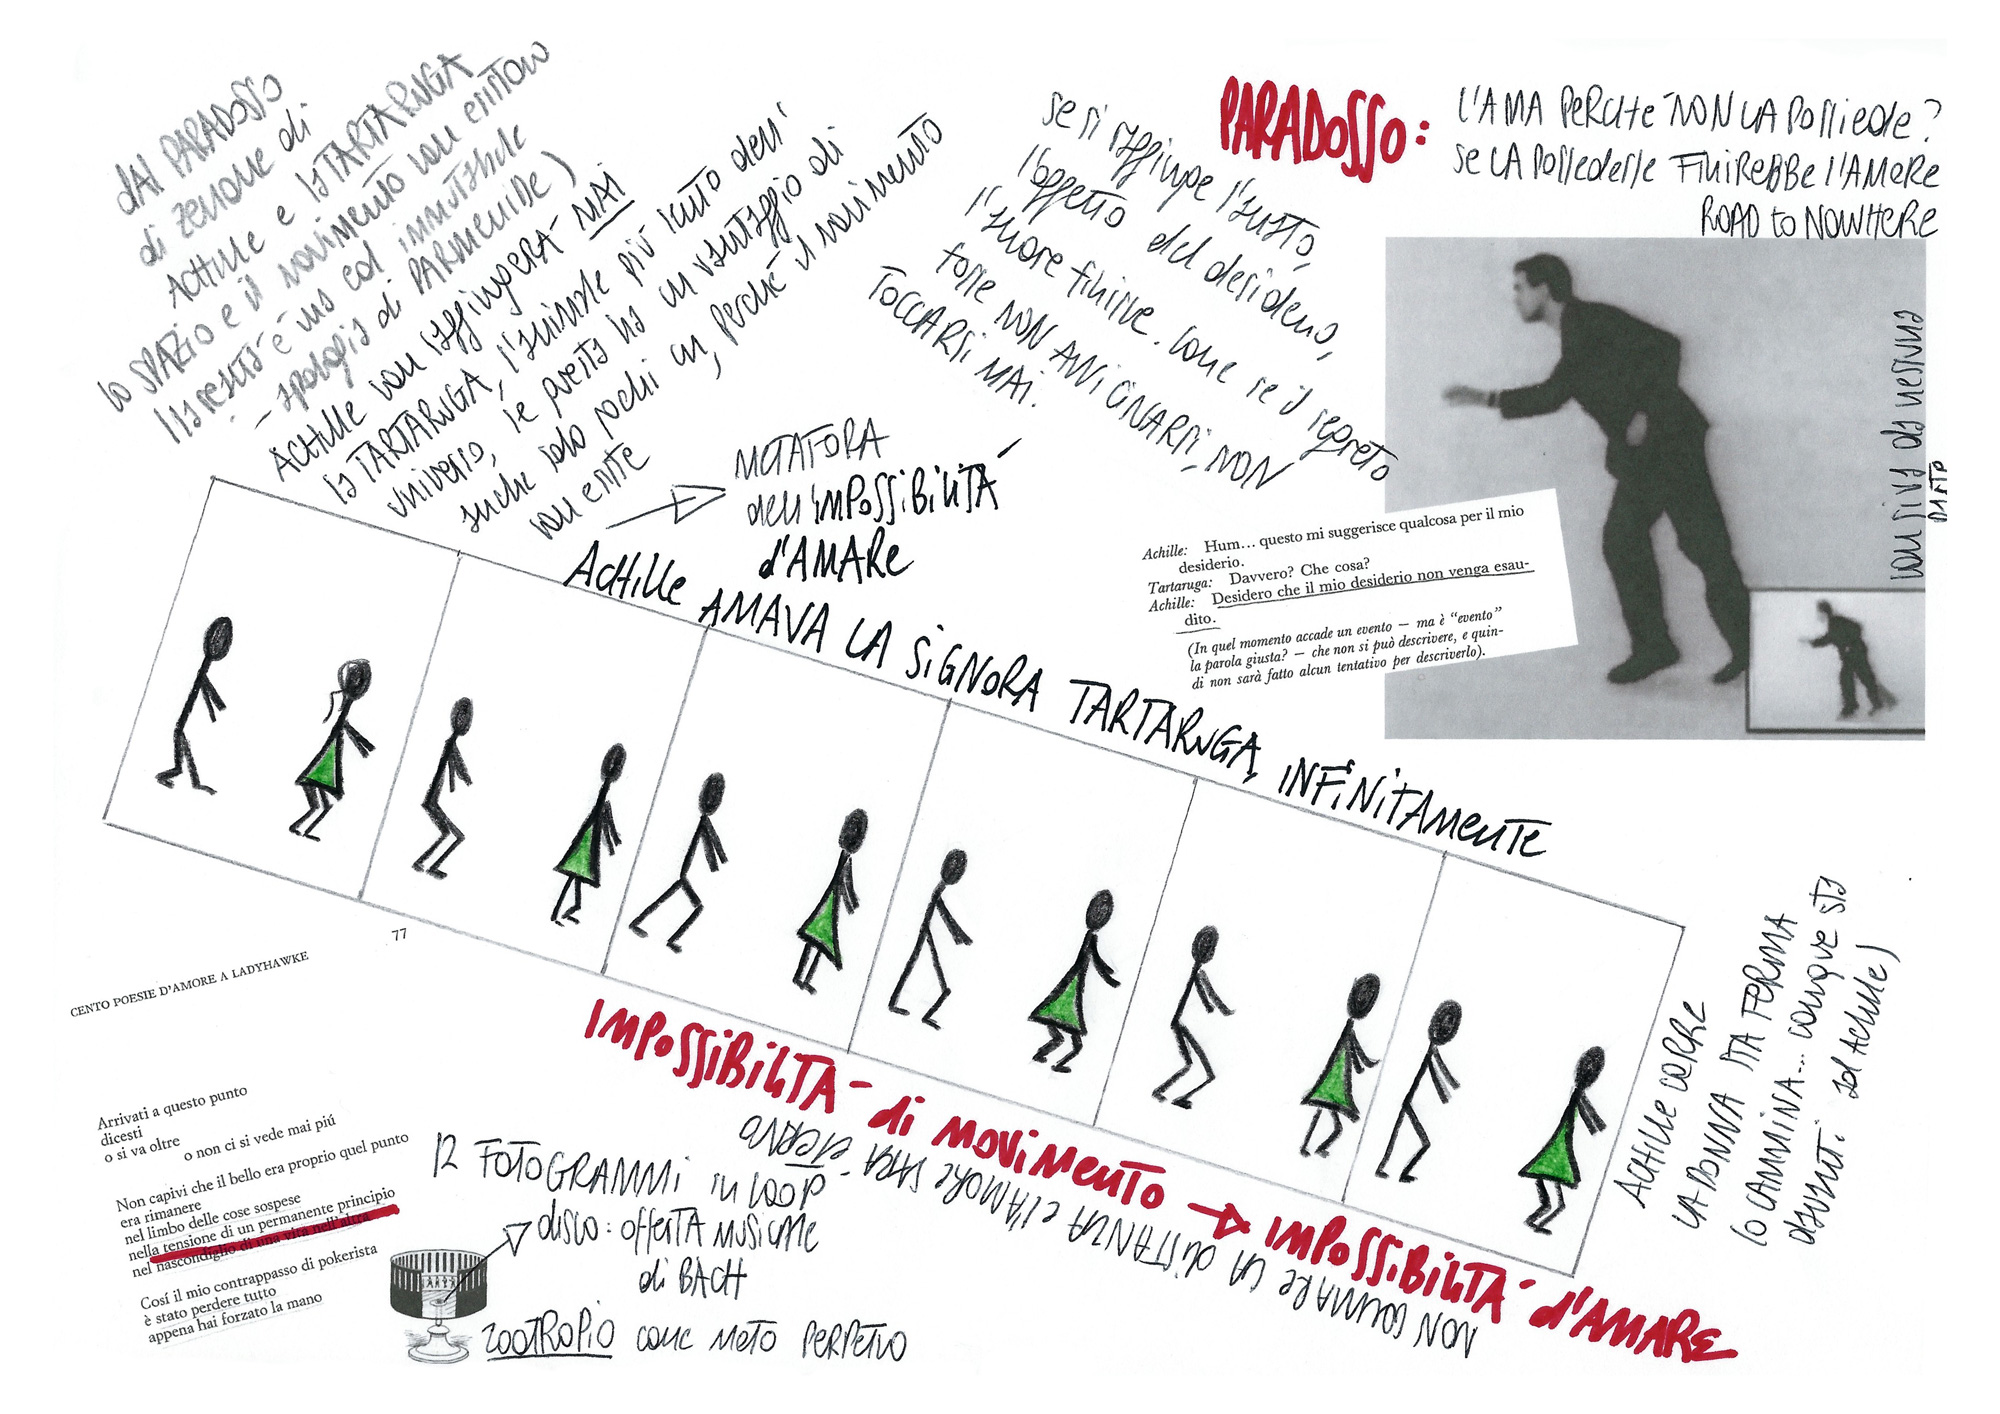 dAl PARADOSSO
di zenone di
ACHille e la TARTARUGA
lo SPAZIO e il movimento non esistono
(la realtà è una ed immutabile
– apologia di PARMENIDE)
ACHille non raggiungerà MAI
la TARTARUGA, l'animale più lento dell'
universo, se questa ha un vantaggio di
anche solo pochi cm, perché il movimento
non esiste
METAFORA
dell'IMPOSSIBILITÀ
d'AMARE
se si raggiunge l'amato,
l'oggetto del desiderio,
l'amore finisce. come se il segreto
fosse NON AVVICINARSI, NON
TOCCARSI MAI.
PARADOSSO:
L'AMA PERCHÉ NON LA POSSIEDE?
SE LA POSSEDESSE FINIREBBE l'AMORE
ROAD to NOWHERE
da nessuna
parte
Achille: Hum... questo mi suggerisce qualcosa per il mio
desiderio.
Tartaruga: Davvero? Che cosa?
Achille: Desidero che il mio desiderio non venga esau-
dito.
(In quel momento accade un evento — ma è “evento”
la parola giusta? — che non si può descrivere, e quin-
di non sarà fatto alcun tentativo per descriverlo).
ACHille AMAVA LA SiGNORA TARTARUGA, INFiNiTAMENTE
ACHILLE CORRE
LA DONNA STA FERMA
lo CAMMINA... comunque sta
davanti ad Achille)
IMPOSSIBILITÀ di MOVIMENTO → IMPOSSIBILITÀ d'AMARE
NON COLMARE LA DISTANZA E L'AMORE SARÀ ETERNO
77
CENTO POESIE D'AMORE A LADYHAWKE
Arrivati a questo punto
dicesti
o si va oltre
o non ci si vede mai piú
Non capivi che il bello era proprio quel punto
era rimanere
nel limbo delle cose sospese
nella tensione di un permanente principio
nel nascondiglio di una vita nell'altra
Cosí il mio contrappasso di pokerista
è stato perdere tutto
appena hai forzato la mano
12 FOTOGRAMMI in LOOP
disco: offerta MUSICALE
di BACH
ZOOTROPIO come MOTO PERPETUO